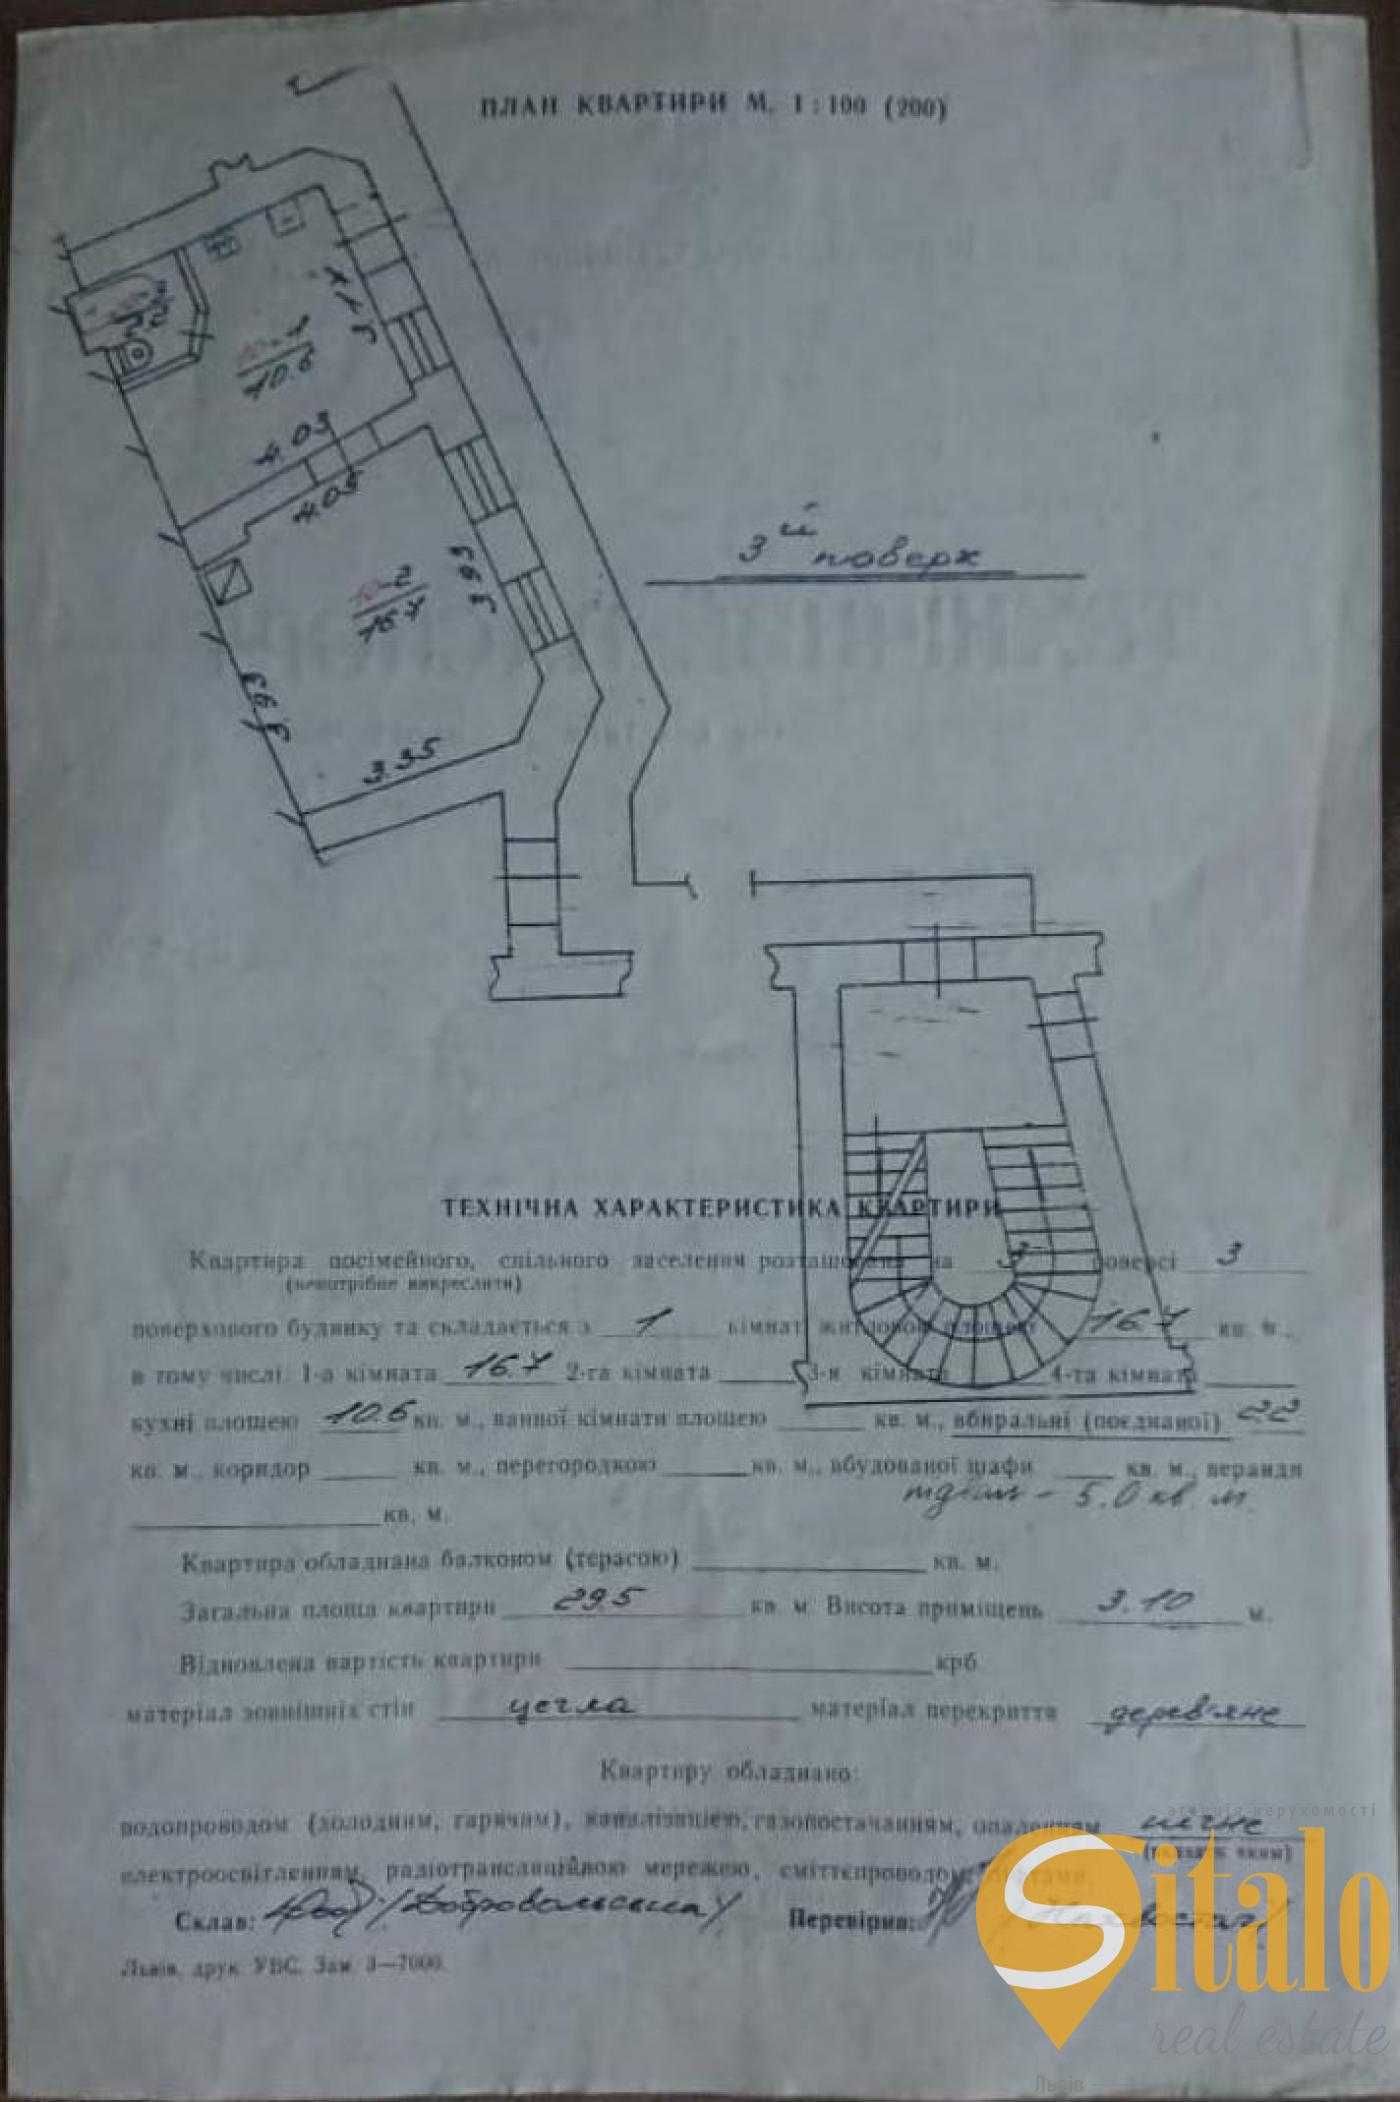 ПЛАН КВАРТИРИ М. 1:100 (200)
2.2
10.6
4.03
4.05
3.93
-2
16.7
5.93
3.35
3й поверх
ТЕХНІЧНА ХАРАКТЕРИСТИКА КВАРТИРИ
Квартира посімейного, спільного заселення розташована на 3 поверсі 3
(непотрібне викреслити)
поверхового будинку та складається з 1 кімнат житловою площею 16.7 кв. м.,
в тому числі: 1-а кімната 16.7 2-га кімната 3-я кімната 4-та кімната
кухні площею 10.6 кв. м., ванної кімнати площею кв. м., вбиральні (поєднаної) 2.2
кв. м., коридор кв. м., перегородкою кв. м., вбудованої шафи кв. м., веранди
- 5.0 кв. м.
кв. м.
Квартира обладнана балконом (терасою) кв. м.
Загальна площа квартири 29.5 кв. м. Висота приміщень 3.10 м.
Відновлена вартість квартири крб
матеріал зовнішніх стін цегла матеріал перекриття дерев'яне
Квартиру обладнано:
водопроводом (холодним, гарячим), каналізацією, газопостачанням, опаленням пічне
(вказати яким)
електроосвітленням, радіотрансляційною мережею, сміттєпроводом, ліфтами.
Склав: /Добровольська/ Перевірив:
Львів, друк. УВС. Зам. 3—7000.
агенція нерухомості
Sitalo
real estate
Львів